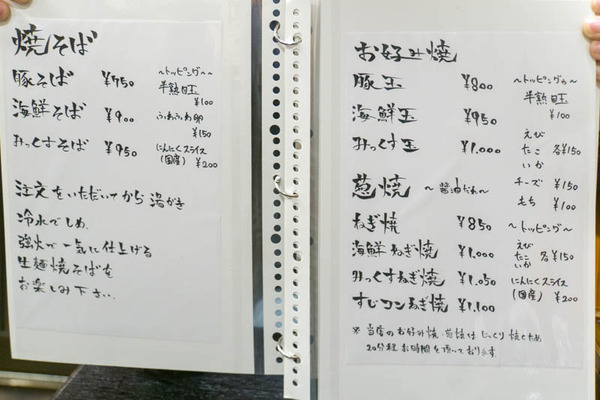 焼そば
豚そば ¥750
海鮮そば ¥900
みっくすそば ¥950
〜トッピング〜
半熟目玉
¥100
ふわふわ卵
¥150
にんにくスライス
(国産) ¥200
注文をいただいてから湯がき
冷水でしめ、
強火で一気に仕上げる
生麺焼そばを
お楽しみ下さい。
お好み焼
豚玉 ¥800
海鮮玉 ¥950
みっくす玉 ¥1.000
〜トッピング〜
半熟目玉
¥100
えび
たこ 各¥150
いか
チーズ ¥150
もち ¥100
葱焼 〜醤油だれ〜
ねぎ焼 ¥850
海鮮ねぎ焼 ¥1.000
みっくすねぎ焼 ¥1.050
すじコンねぎ焼 ¥1.100
〜トッピング〜
えび
たこ 各¥150
いか
にんにくスライス
(国産) ¥200
※当店のお好み焼・葱焼はじっくり焼くため
20分程お時間を頂いております